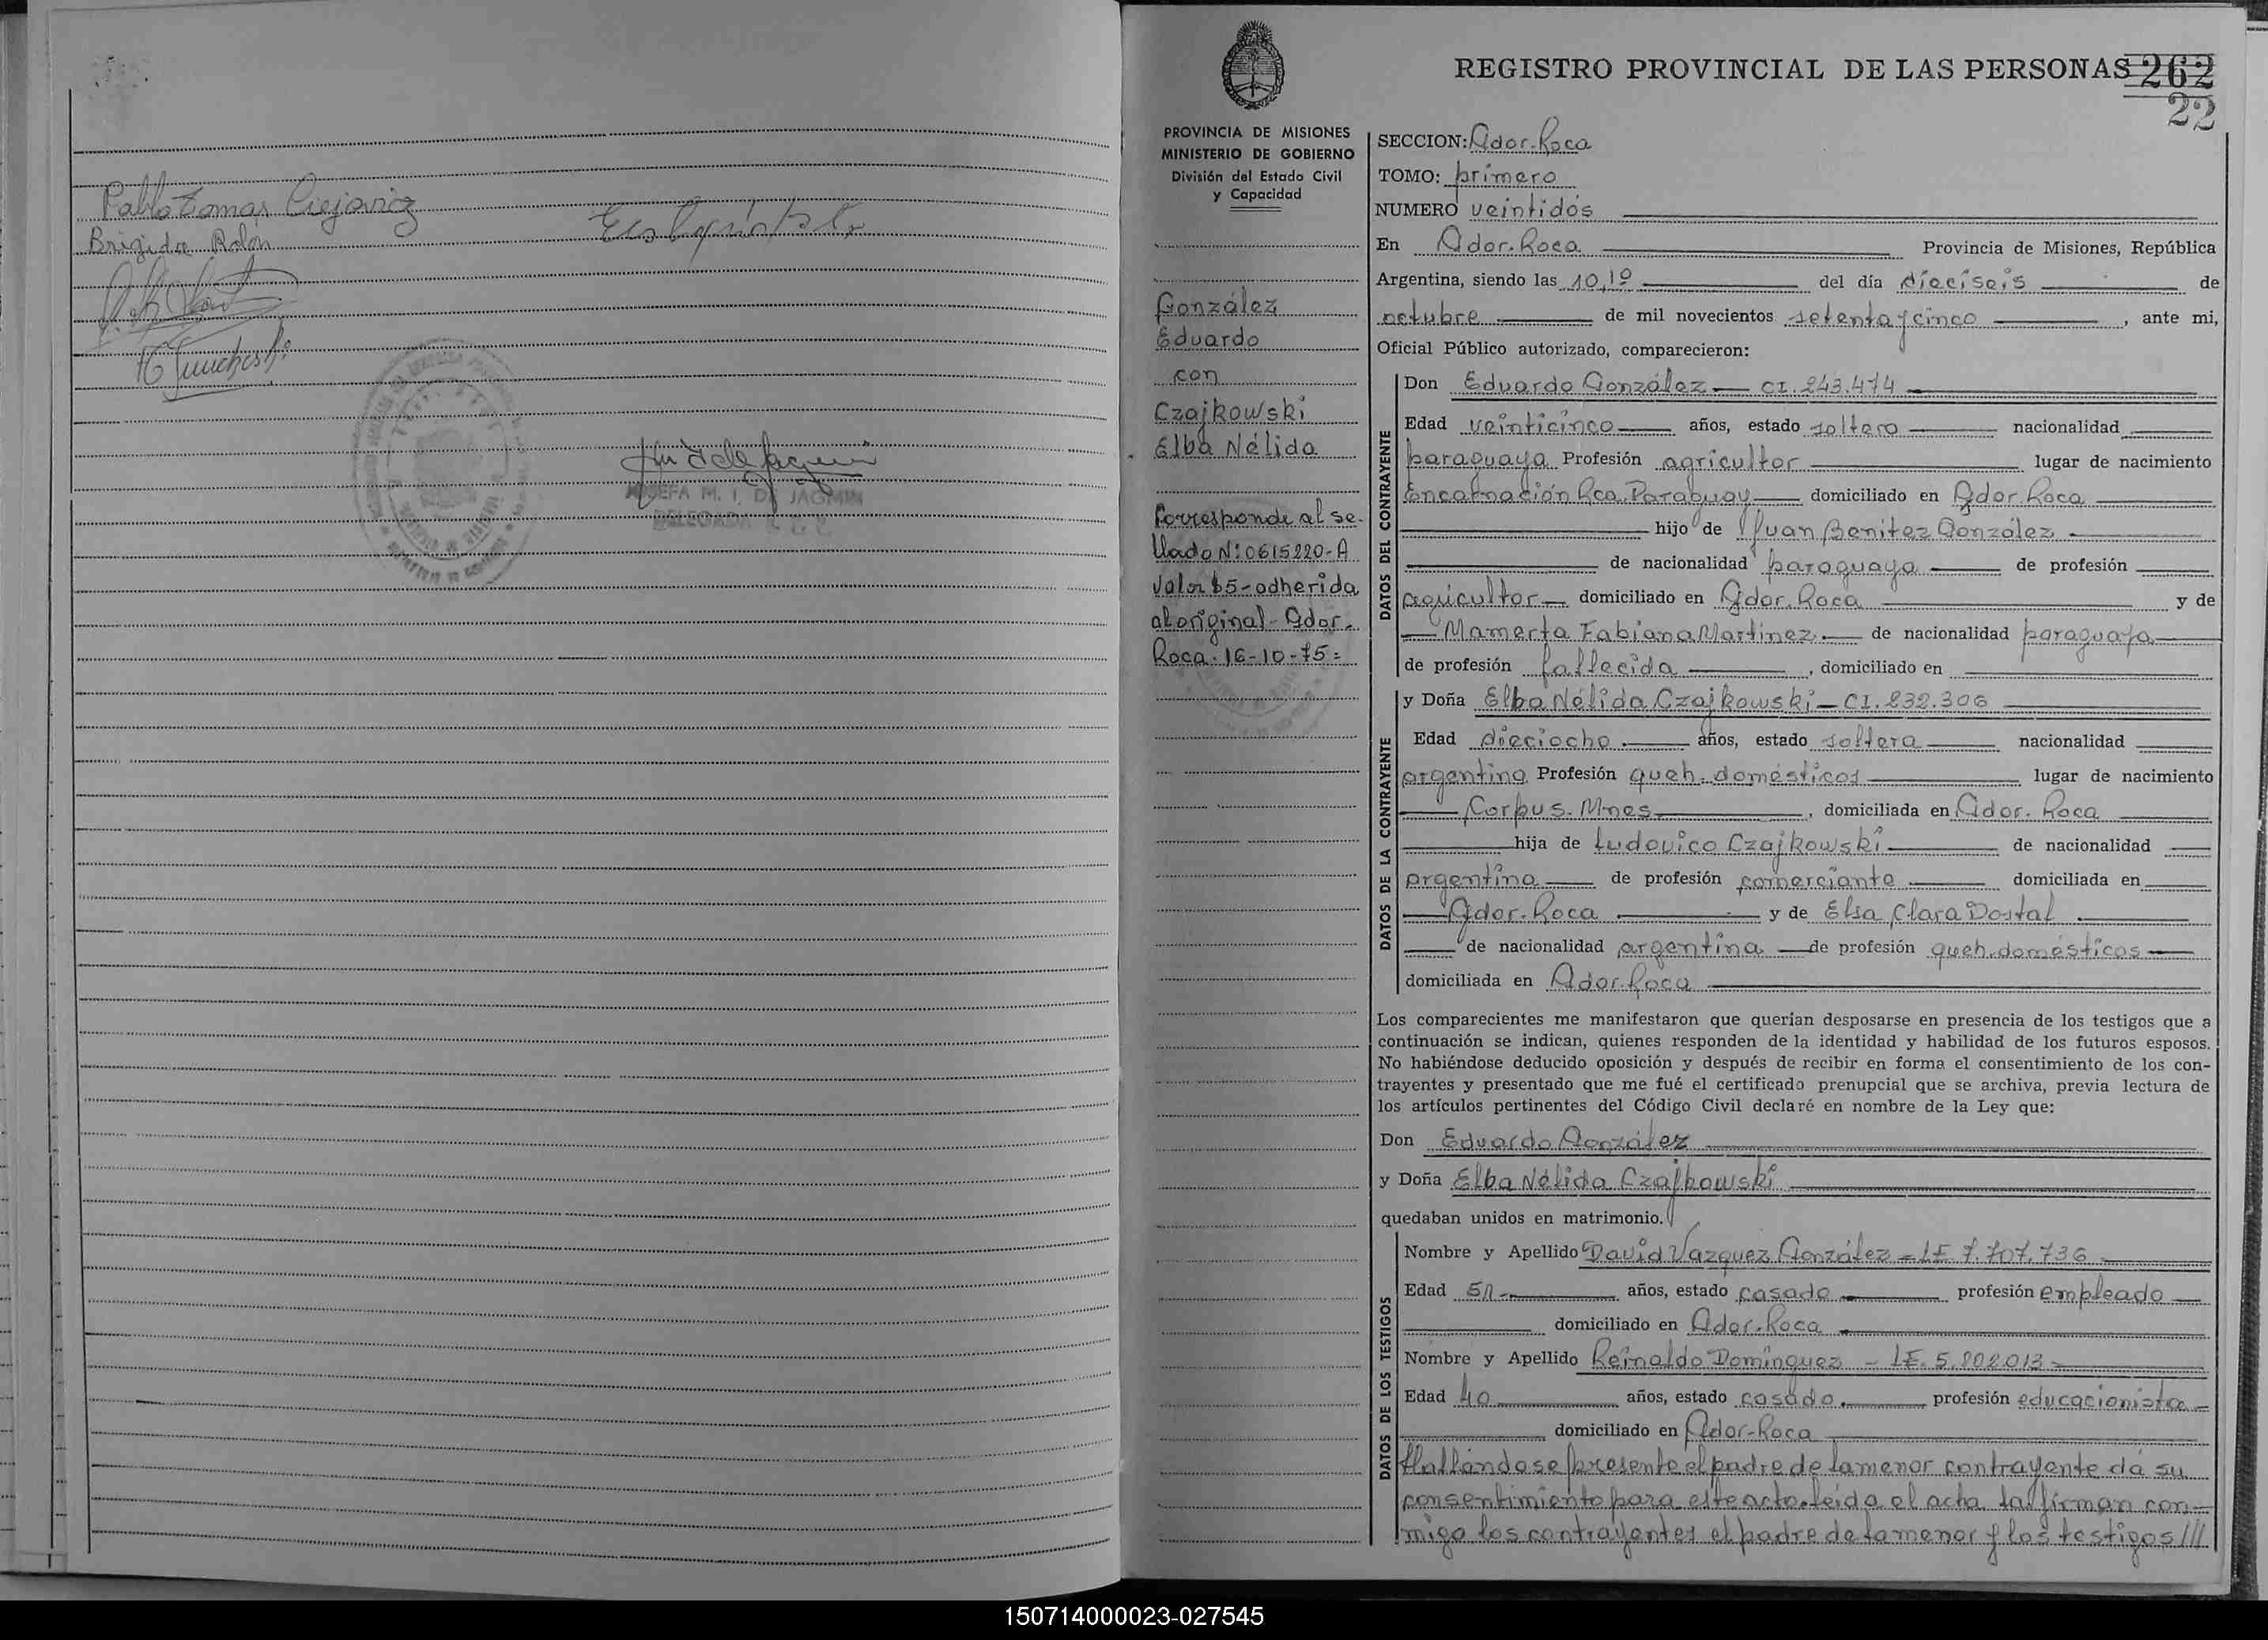 Pablo Tomas Ciejovicz
Brigida Rolón
JOSEFA M. I. DE JAGMIN
DELEGADA R. C.
REGISTRO PROVINCIAL DE LAS PERSONAS 262
22
PROVINCIA DE MISIONES
MINISTERIO DE GOBIERNO
División del Estado Civil
y Capacidad
González
Eduardo
con
Czajkowski
Elba Nélida
Corresponde al se-
llado Nº 0615220-A
valor $5-adherida
al original-Gdor.
Roca-16-10-75=
SECCION: Gdor. Roca
TOMO: primero
NUMERO veintidós
En Gdor. Roca Provincia de Misiones, República
Argentina, siendo las 10,10 del día dieciseis de
octubre de mil novecientos setenta y cinco, ante mi,
Oficial Público autorizado, comparecieron:
DATOS DEL CONTRAYENTE
Don Eduardo González - CI. 243.474
Edad veinticinco años, estado soltero nacionalidad
paraguaya Profesión agricultor lugar de nacimiento
Encarnación Rca. Paraguay domiciliado en Gdor. Roca
hijo de Juan Benitez González
de nacionalidad paraguaya de profesión
agricultor domiciliado en Gdor. Roca y de
Mamerta Fabiana Martinez de nacionalidad paraguaya
de profesión fallecida, domiciliado en
DATOS DE LA CONTRAYENTE
y Doña Elba Nélida Czajkowski - CI. 232.306
Edad dieciocho años, estado soltera nacionalidad
argentina Profesión queh. domésticos lugar de nacimiento
Corpus. Mnes, domiciliada en Gdor. Roca
hija de Ludovico Czajkowski de nacionalidad
argentina de profesión comerciante domiciliada en
Gdor. Roca y de Elsa Clara Dostal
de nacionalidad argentina de profesión queh. domésticos
domiciliada en Gdor. Roca
Los comparecientes me manifestaron que querían desposarse en presencia de los testigos que a
continuación se indican, quienes responden de la identidad y habilidad de los futuros esposos.
No habiéndose deducido oposición y después de recibir en forma el consentimiento de los con-
trayentes y presentado que me fué el certificado prenupcial que se archiva, previa lectura de
los artículos pertinentes del Código Civil declaré en nombre de la Ley que:
Don Eduardo González
y Doña Elba Nélida Czajkowski
quedaban unidos en matrimonio.
DATOS DE LOS TESTIGOS
Nombre y Apellido David Vazquez González = LE 7.707.736
Edad 51 años, estado casado profesión empleado
domiciliado en Gdor. Roca
Nombre y Apellido Reinaldo Domínguez - LE. 5.802.013
Edad 40 años, estado casado profesión educacionista
domiciliado en Gdor-Roca
Hallándose presente el padre de la menor contrayente dá su
consentimiento para este acto. leida el acta la firman con-
migo los contrayentes el padre de la menor y los testigos///
150714000023-027545